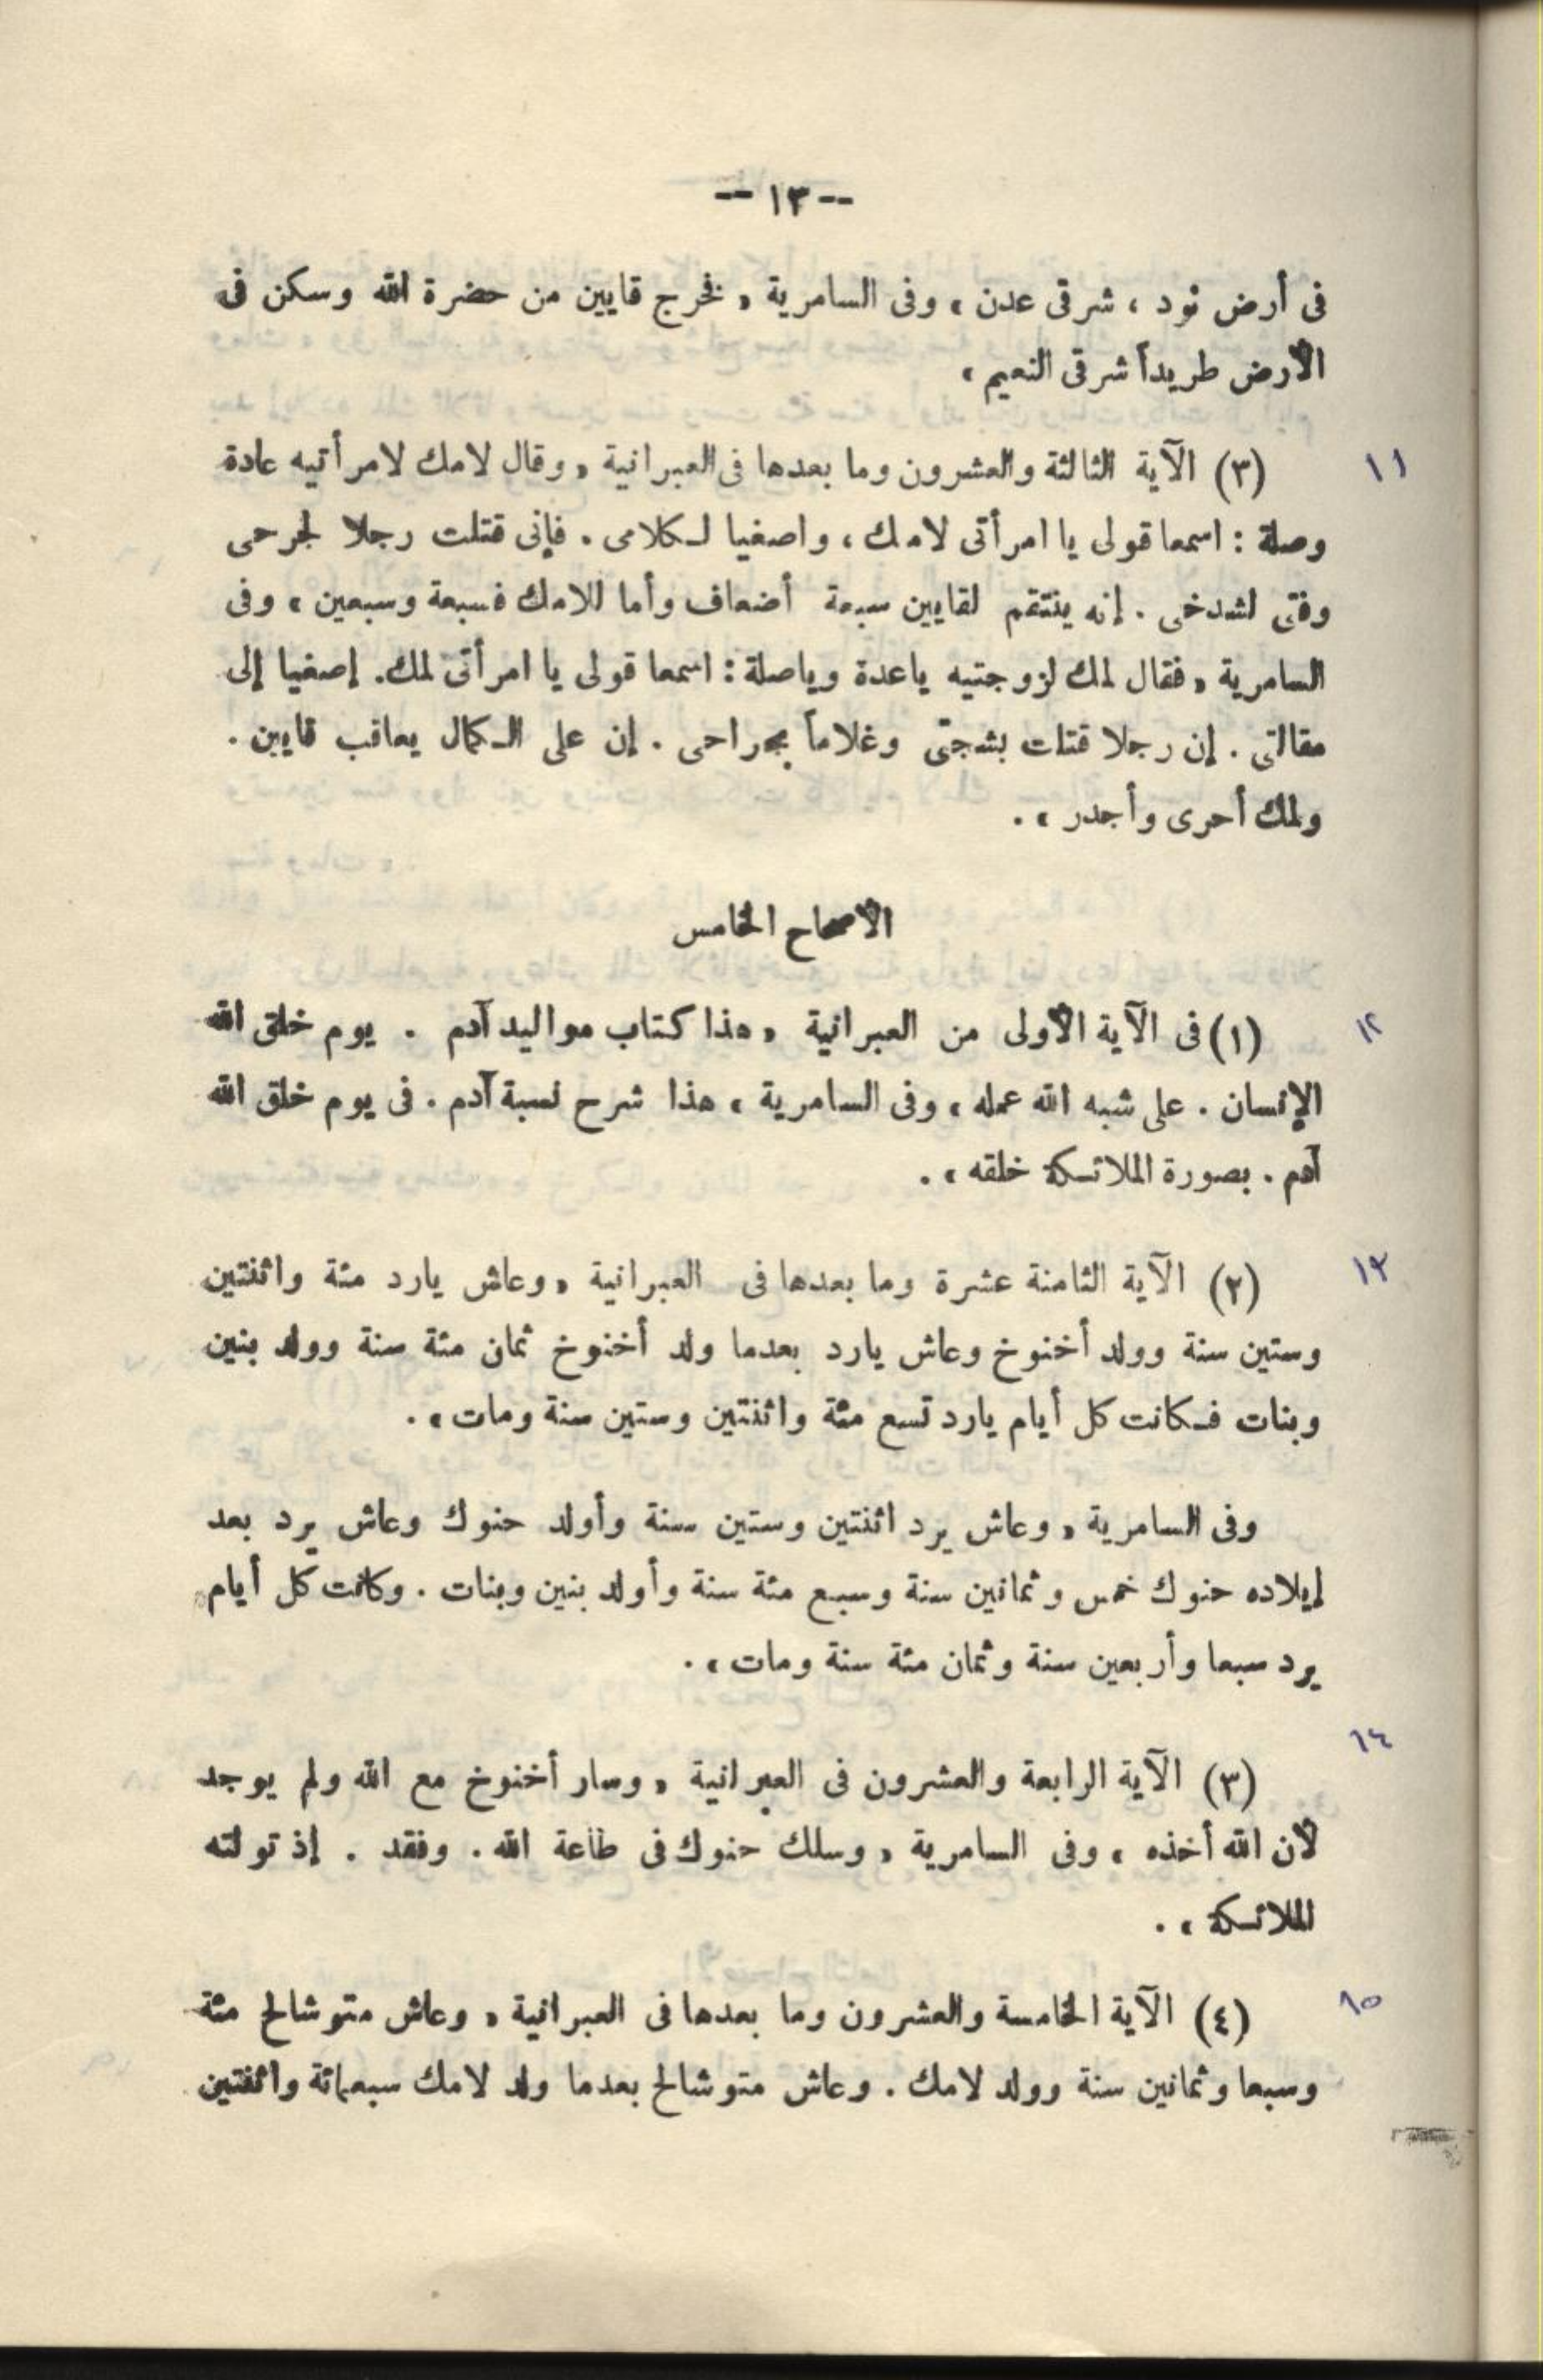 -- ١٣ --
فى أرض نود ، شرقى عدن ، وفى السامرية « فخرج قايين من حضرة الله وسكن فى
الأرض طريداً شرقى النعيم »
١١
(٣) الآية الثالثة والعشرون وما بعدها فى العبرانية « وقال لامك لامرأتيه عادة
وصلة : اسمعا قولى يا امرأتى لامك ، واصغيا لكلامى . فإنى قتلت رجلا لجرحى
وفتى لشدخى . إنه ينتقم لقايين سبعة أضعاف وأما للامك فسبعة وسبعين » وفى
السامرية « فقال لمك لزوجتيه ياعدة وياصلة : اسمعا قولى يا امرأتى لمك . إصغيا إلى
مقالتى . إن رجلا قتلت بشجتى وغلاماً بجراحى . إن على الكمال يعاقب قايين .
ولمك أحرى وأجدر » .
الأصحاح الخامس
١٢
(١) فى الآية الأولى من العبرانية « هذا كتاب مواليد آدم . يوم خلق الله
الإنسان . على شبه الله عمله » وفى السامرية « هذا شرح نسبة آدم . فى يوم خلق الله
آدم . بصورة الملائكة خلقه » .
١٣
(٢) الآية الثامنة عشرة وما بعدها فى العبرانية « وعاش يارد مئة واثنتين
وستين سنة وولد أخنوخ وعاش يارد بعدما ولد أخنوخ ثمان مئة سنة وولد بنين
وبنات فكانت كل أيام يارد تسع مئة واثنتين وستين سنة ومات » .
وفى السامرية « وعاش يرد اثنتين وستين سنة وأولد حنوك وعاش يرد بعد
إيلاده حنوك خمس وثمانين سنة وسبع مئة سنة وأولد بنين وبنات . وكانت كل أيام
يرد سبعا وأربعين سنة وثمان مئة سنة ومات » .
١٤
(٣) الآية الرابعة والعشرون فى العبرانية « وسار أخنوخ مع الله ولم يوجد
لأن الله أخذه » وفى السامرية « وسلك حنوك فى طاعة الله . وفقد . إذ تولته
الملائكة » .
١٥
(٤) الآية الخامسة والعشرون وما بعدها فى العبرانية « وعاش متوشالح مئة
وسبعا وثمانين سنة وولد لامك . وعاش متوشالح بعدما ولد لامك سبعمائة واثنتين